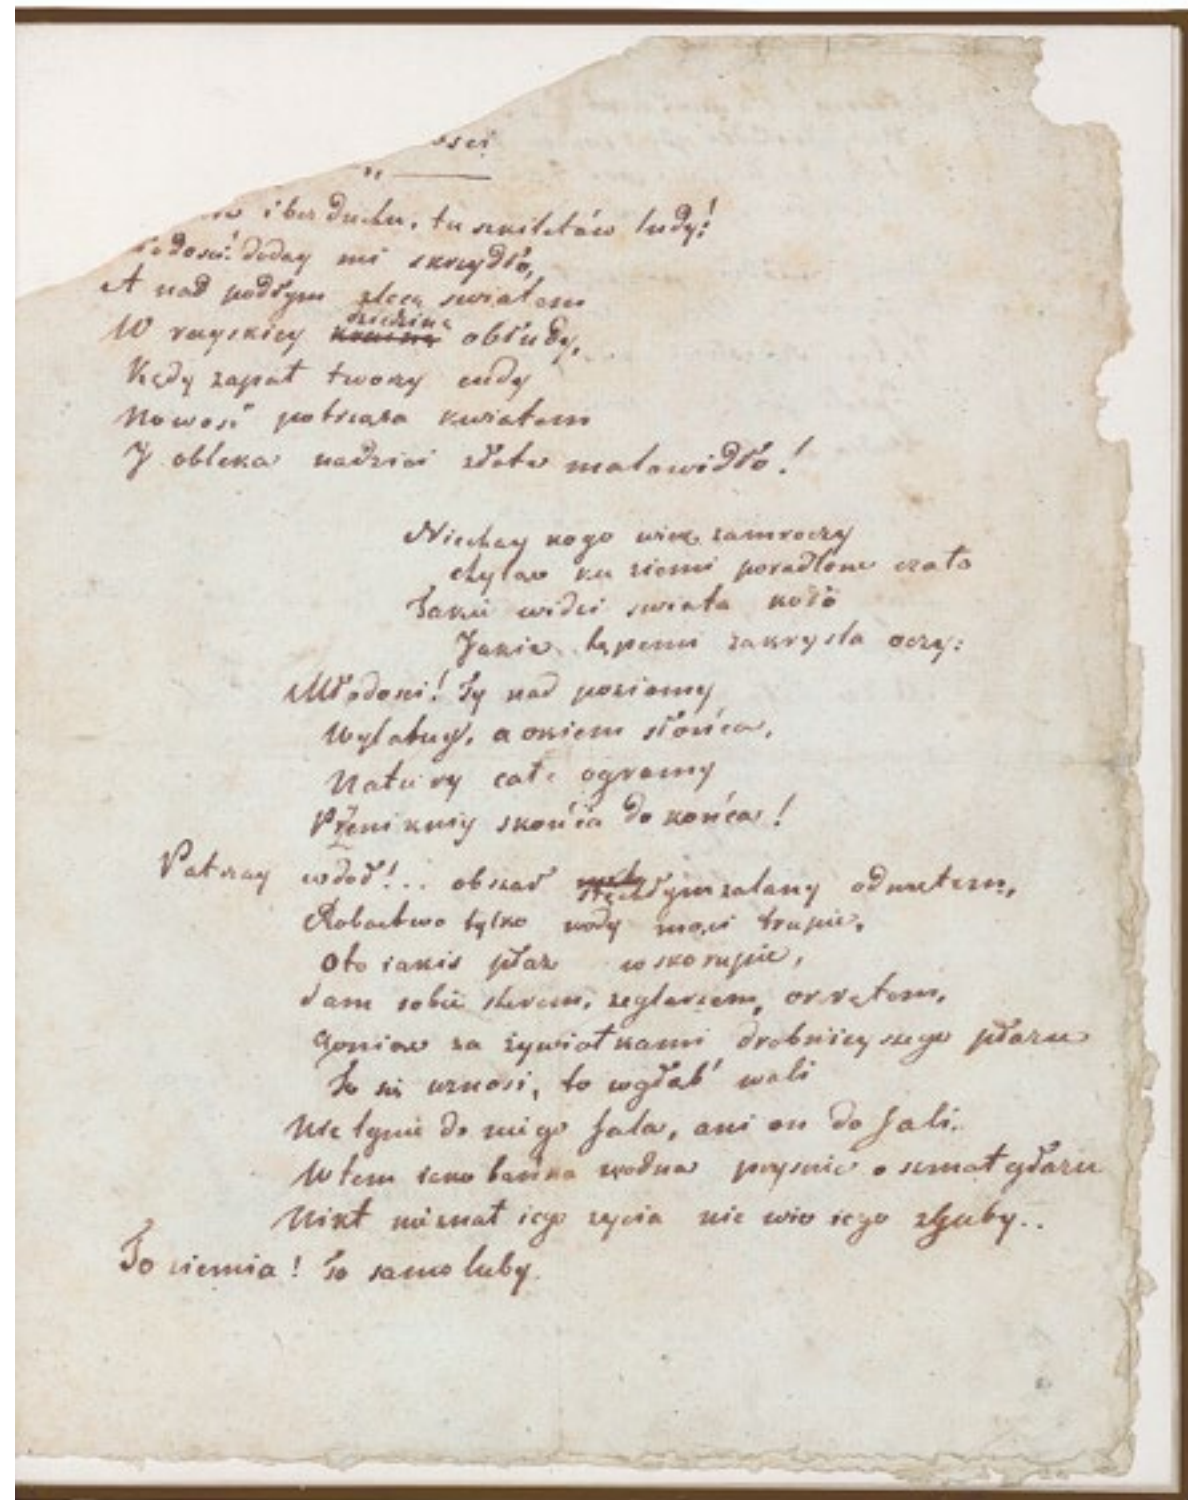 ości
i bez ducha, tu szkiletów ludy!
łodość! doday mi skrzydło,
A nad podłym zlecę swiatem
W rayskiey dziedzinę obłudy,
Kędy zapał tworzy cudy
Nowość potrząsa kwiatem
J obleka nadziei złote malowidło!
Niechay kogo wiek zamroczy
chyląc ku ziemi poradlone czoło
Takie widzi swiata koło
Jakie tępemi zakrysla oczy:
Młodosci! Ty nad poziomy
Wylatuy, a okiem słońca,
Natury całe ogromy
Przenikniy z końca do końca!
Patrzay wdoł!.. obszar zalany odmętem,
Robactwo tylko wody mąci trupie,
Oto iakis płaz w skorupie,
Sam sobie sterem, zeglarzem, orrętem,
Goniąc za żywiołkami drobnieyszego płazu
To się wznosi, to wgłąb' wali
Nie lgnie do niego fala, ani on do fali.
Wtem iako bańka wodna prysnie o szmat głazu
Nikt nieznał iego zycia nie wie iego zguby..
To ziemia! To samoluby.